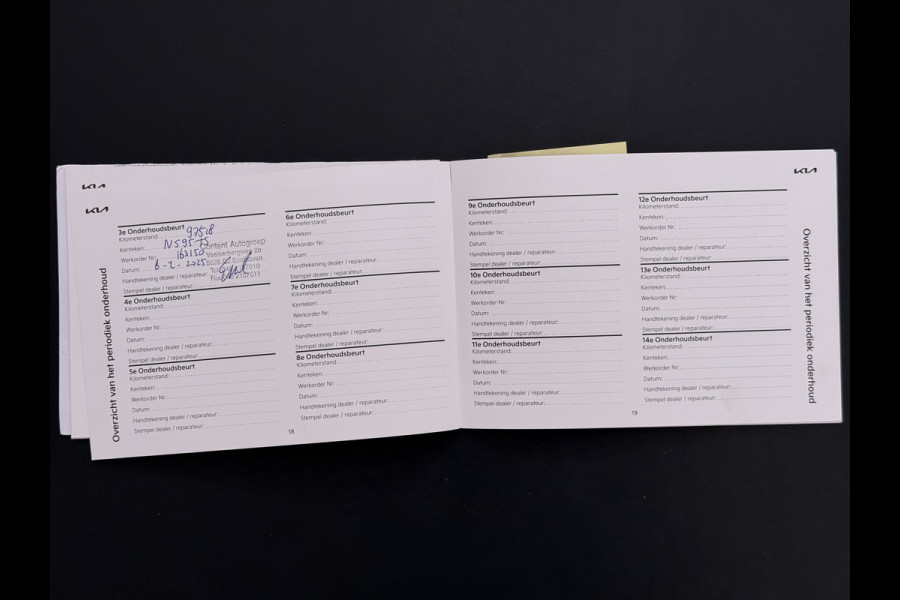 KIA
KIA
Overzicht van het periodiek onderhoud
3e Onderhoudsbeurt
Kilometerstand:
Kenteken:
Werkorder Nr:
Datum: 6-2-2025
Handtekening dealer / reparateur:
Stempel dealer / reparateur:
Content Autogroep
4e Onderhoudsbeurt
Kilometerstand:
Kenteken:
Werkorder Nr:
Datum:
Handtekening dealer / reparateur:
Stempel dealer / reparateur:
5e Onderhoudsbeurt
Kilometerstand:
Kenteken:
Werkorder Nr:
Datum:
Handtekening dealer / reparateur:
Stempel dealer / reparateur:
6e Onderhoudsbeurt
Kilometerstand:
Kenteken:
Werkorder Nr:
Datum:
Handtekening dealer / reparateur:
Stempel dealer / reparateur:
7e Onderhoudsbeurt
Kilometerstand:
Kenteken:
Werkorder Nr:
Datum:
Handtekening dealer / reparateur:
Stempel dealer / reparateur:
8e Onderhoudsbeurt
Kilometerstand:
Kenteken:
Werkorder Nr:
Datum:
Handtekening dealer / reparateur:
Stempel dealer / reparateur:
18
KIA
9e Onderhoudsbeurt
Kilometerstand:
Kenteken:
Werkorder Nr:
Datum:
Handtekening dealer / reparateur:
Stempel dealer / reparateur:
10e Onderhoudsbeurt
Kilometerstand:
Kenteken:
Werkorder Nr:
Datum:
Handtekening dealer / reparateur:
Stempel dealer / reparateur:
11e Onderhoudsbeurt
Kilometerstand:
Kenteken:
Werkorder Nr:
Datum:
Handtekening dealer / reparateur:
Stempel dealer / reparateur:
12e Onderhoudsbeurt
Kilometerstand:
Kenteken:
Werkorder Nr:
Datum:
Handtekening dealer / reparateur:
Stempel dealer / reparateur:
13e Onderhoudsbeurt
Kilometerstand:
Kenteken:
Werkorder Nr:
Datum:
Handtekening dealer / reparateur:
Stempel dealer / reparateur:
14e Onderhoudsbeurt
Kilometerstand:
Kenteken:
Werkorder Nr:
Datum:
Handtekening dealer / reparateur:
Stempel dealer / reparateur:
Overzicht van het periodiek onderhoud
19